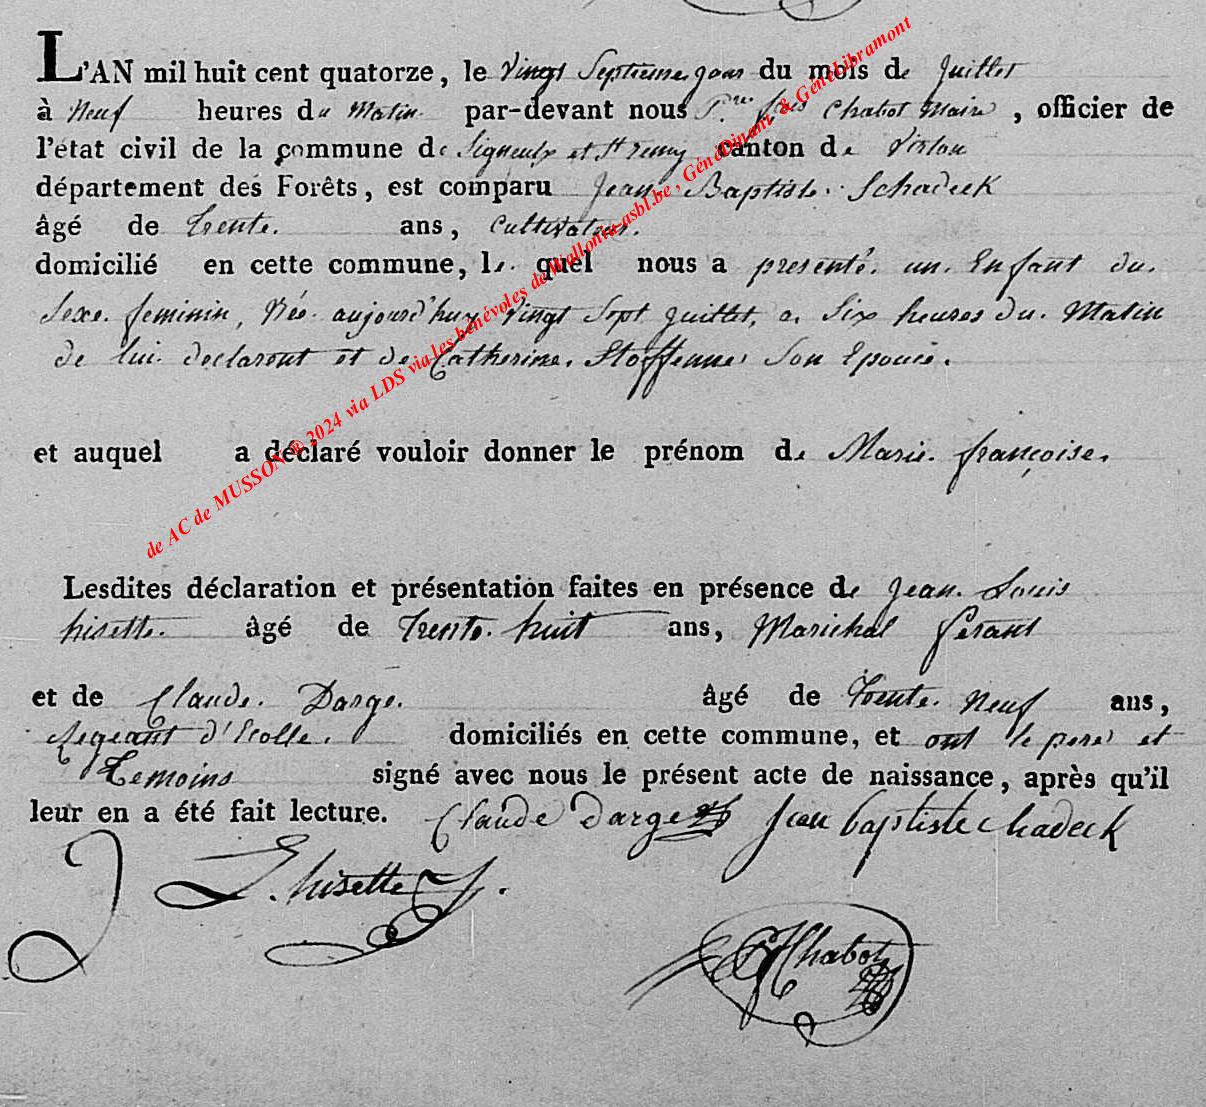 L'AN mil huit cent quatorze, le Vingt Septieme jour du mois de Juillet
à Neuf heures du Matin par-devant nous P.re fçois Chabot Maire, officier de
l'état civil de la commune de Signeulx et St remy canton de Virton
département des Forêts, est comparu Jean Baptiste Schadeck
âgé de trente ans, Cultivateur.
domicilié en cette commune, le quel nous a presenté un Enfant du
Sexe feminin, Née aujourd'huy Vingt Sept Juillet, a Six heures du Matin
de lui declarant et de Catherine Stoffenne Son Epouse.
et auquel a déclaré vouloir donner le prénom de Marie françoise.
Lesdites déclaration et présentation faites en présence de Jean Louis
hisette âgé de trente huit ans, Marichal ferant
et de Claude Darge. âgé de trente Neuf ans,
Regeant d'Ecolle. domiciliés en cette commune, et ont le pere et
Temoins signé avec nous le présent acte de naissance, après qu'il
leur en a été fait lecture. Claude Darge Jean baptiste chadeck
J L. hisette
Chabot
de AC de MUSSON ® 2024 via LDS via les bénévoles de Wallonia-asbl.be, GénéDinant & GénéLibramont